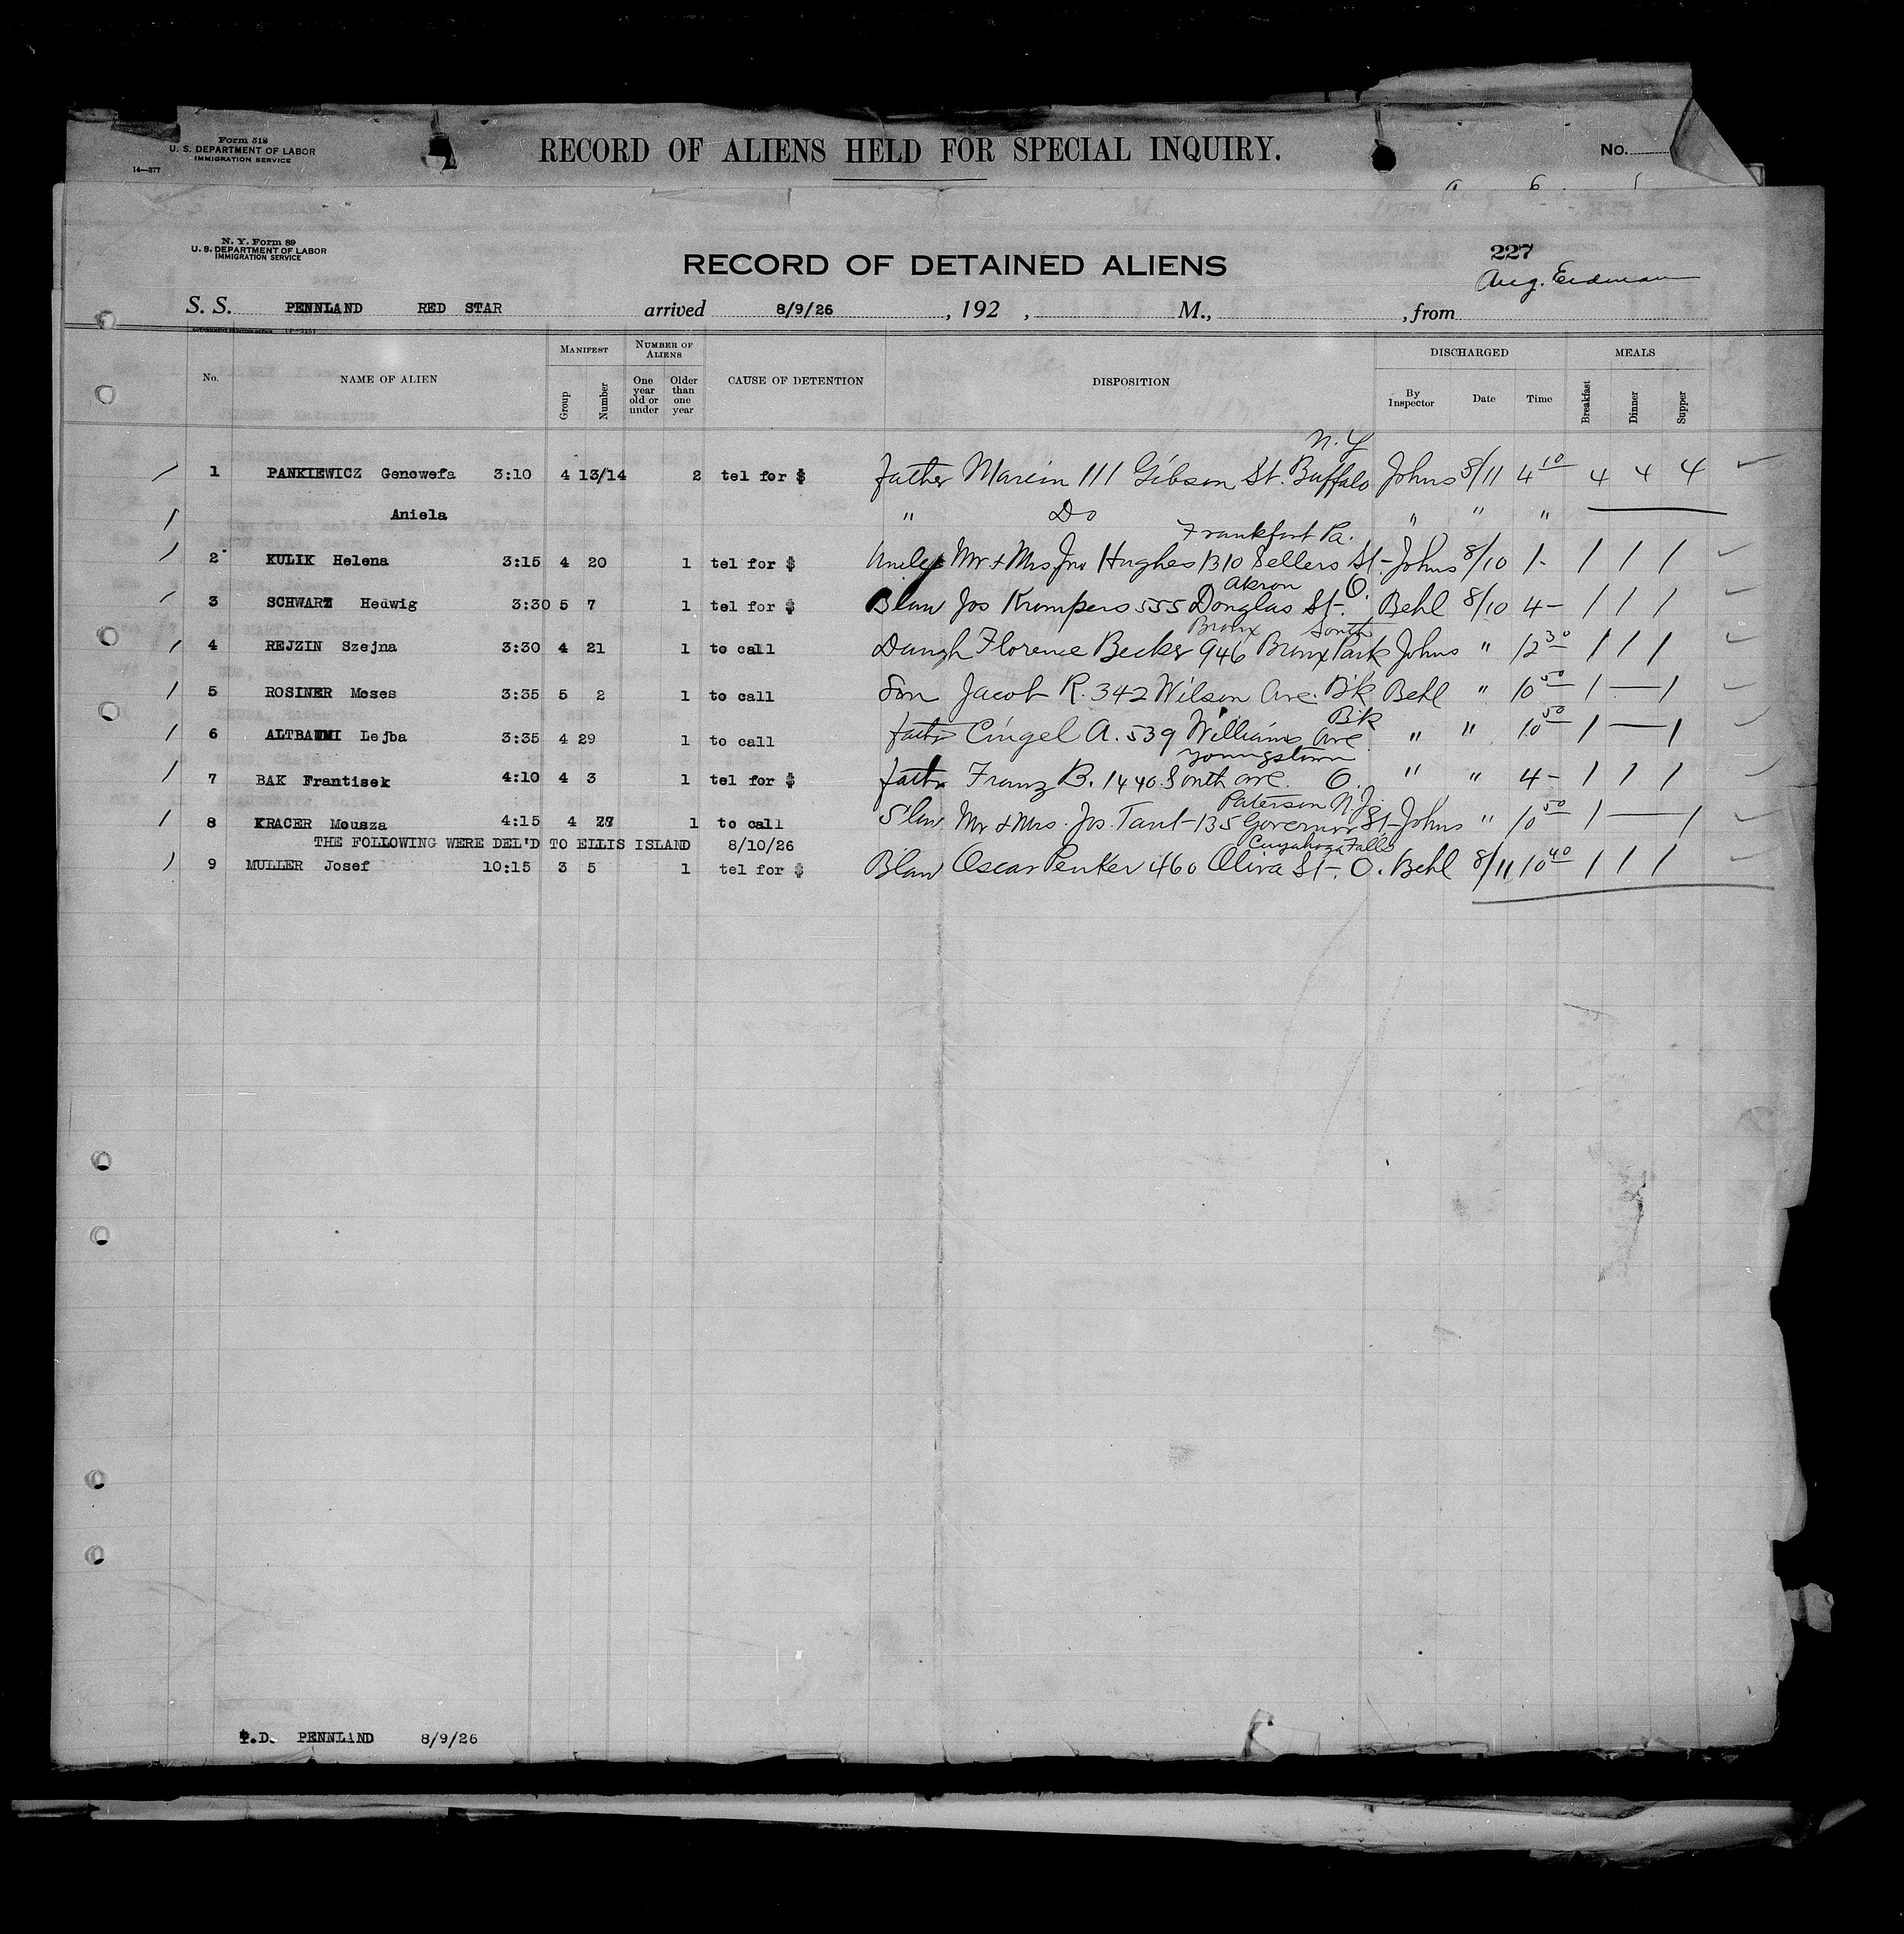 Form 518
U. S. DEPARTMENT OF LABOR
IMMIGRATION SERVICE
14—377
RECORD OF ALIENS HELD FOR SPECIAL INQUIRY.
No.
N. Y. Form 89
U. S. DEPARTMENT OF LABOR
IMMIGRATION SERVICE
RECORD OF DETAINED ALIENS
227
Aug. Eidman
S. S. PENNLAND RED STAR arrived 8/9/26, 192 , M., , from
No. NAME OF ALIEN MANIFEST Group Number NUMBER OF ALIENS One year old or under Older than one year CAUSE OF DETENTION DISPOSITION DISCHARGED By Inspector Date Time MEALS Breakfast Dinner Supper
N. Y.
1 PANKIEWICZ Genowefa 3:10 4 13/14 2 tel for $ father Marcin 111 Gibson St. Buffalo Johns 8/11 4 10 4 4 4
Aniela " Do " " "
Frankfort Pa.
2 KULIK Helena 3:15 4 20 1 tel for $ Mr + Mrs Jno Hughes 1310 Sellers St- Johns 8/10 1- 1 1 1
Akron O.
3 SCHWARZ Hedwig 3:30 5 7 1 tel for $ Blaw Jos Krumpers 555 Douglas St-. Behl 8/10 4- 1 1 1
Bronx South
4 REJZIN Szejna 3:30 4 21 1 to call Daugh Florence Becker 946 Bronx Park Johns " 12 30 1 1 1
5 ROSINER Moses 3:35 5 2 1 to call Son Jacob R. 342 Wilson Ave. B'k Behl " 10 50 1 — 1
B'k
6 ALTBAUMI Lejba 3:35 4 29 1 to call father Cingel A. 539 Williams Ave " " 10 50 1 — 1
Youngstown
7 BAK Frantisek 4:10 4 3 1 tel for $ father Franz B. 1440 South Ave. O. " " 4- 1 1 1
Paterson N.J.
8 KRACER Mousza 4:15 4 27 1 to call S'law Mr & Mrs. Jos. Tant- 135 Governor St- Johns " 10 50 1 — 1
THE FOLLOWING WERE DEL'D TO ELLIS ISLAND 8/10/26
Cuyahoga Falls
9 MULLER Josef 10:15 3 5 1 tel for $ Blaw Oscar Penker 460 Alira St-. O. Behl 8/11 10 40 1 1 1
T.D. PENNLAND 8/9/26